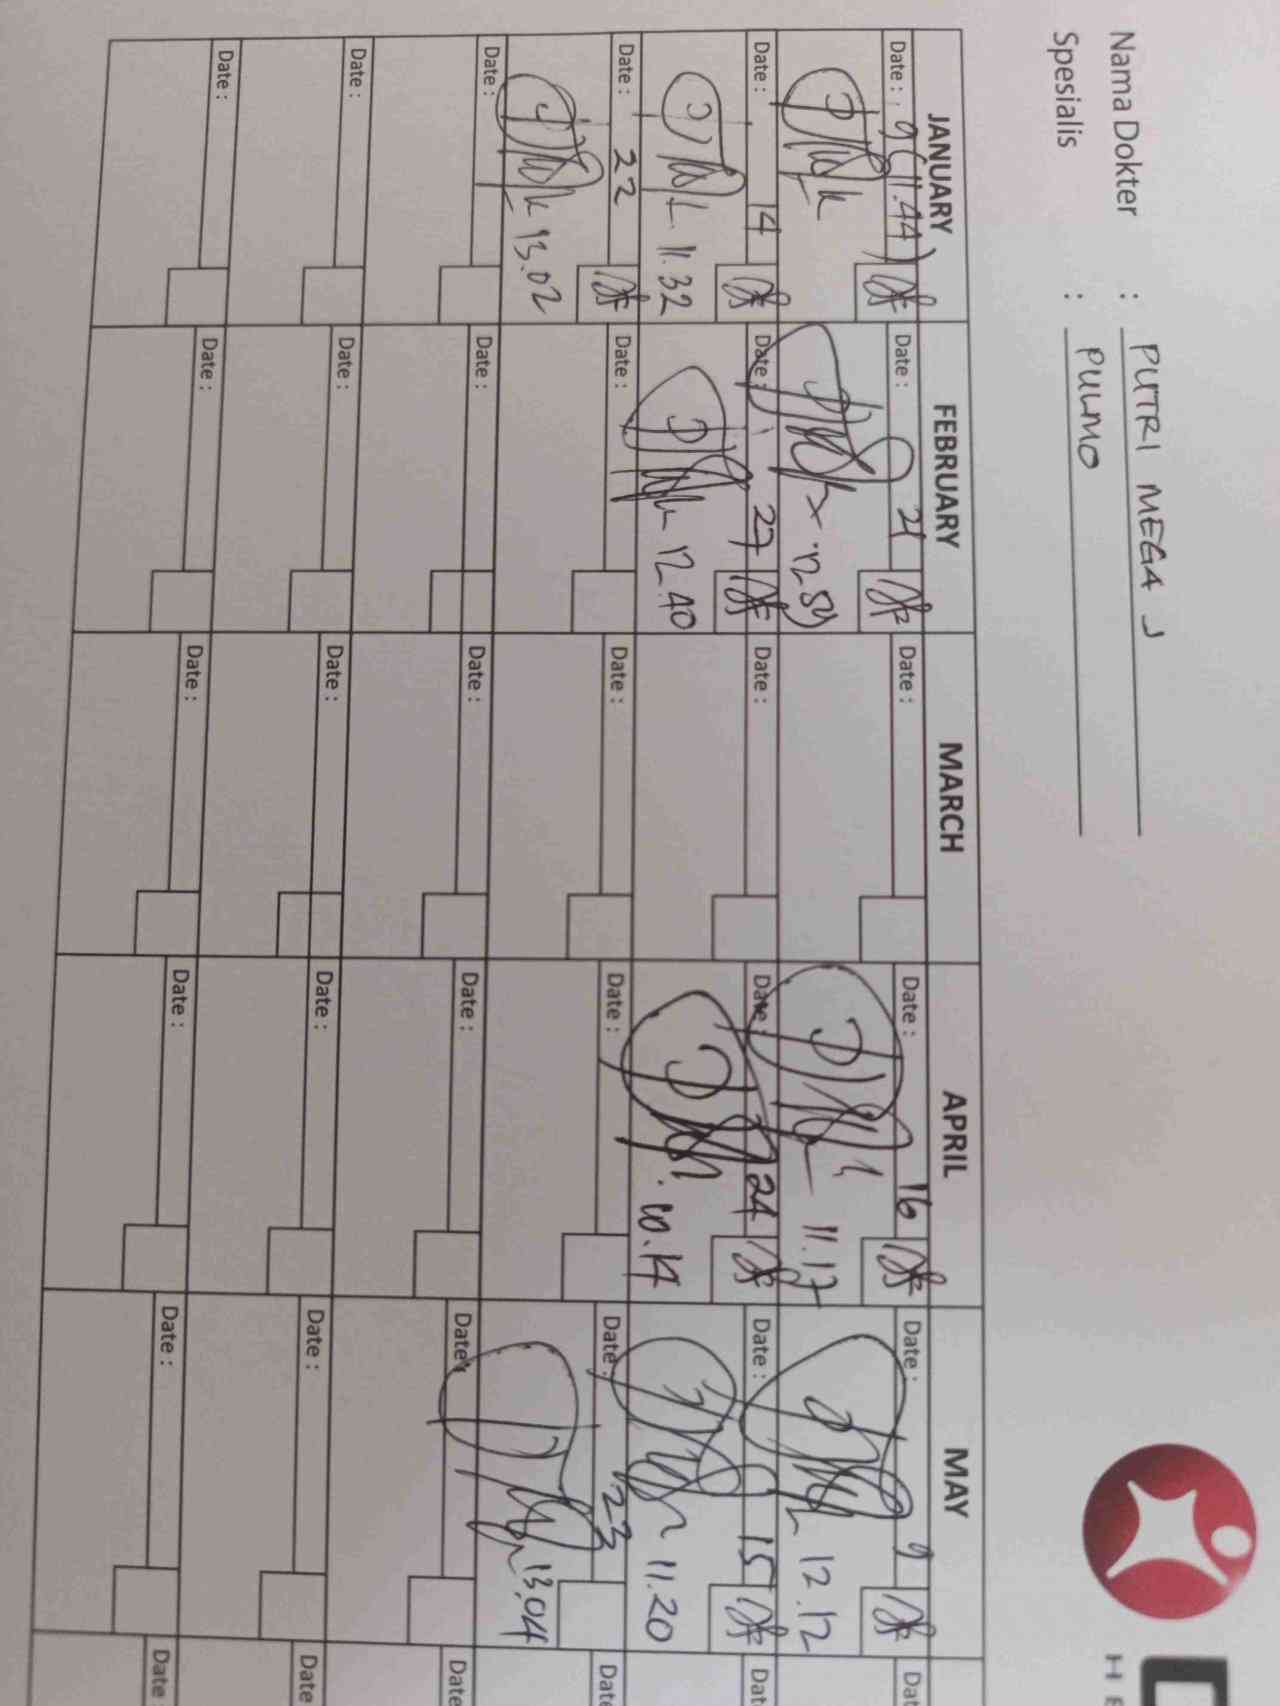 Nama Dokter : PUTRI MEGA J
Spesialis : PULMO
JANUARY FEBRUARY MARCH APRIL MAY
Date : 9 (11.44) Date : 21 Date : Date : 16 Date : 9
12.59 11.17 12.12
Date : 14 Date : 27 Date : Date : 24 Date : 15
11.32 12.40 10.14 11.20
Date : 22 Date : Date : Date : Date : 23
13.02 13.04
Date : Date : Date : Date : Date : Date
Date : Date : Date : Date : Date : Date
Date : Date : Date : Date : Date : Date